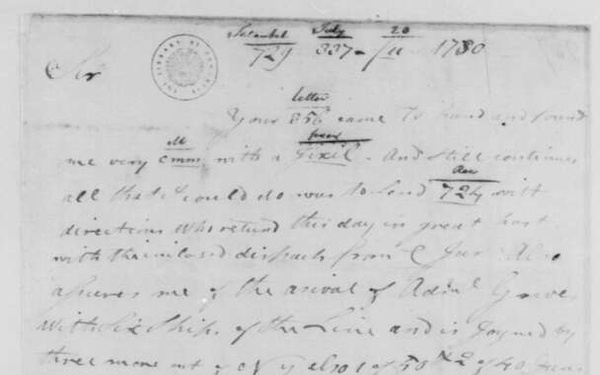 Setauket July 20
729 337 - /u 1780
Sir
letter
Your 356 came to hand and found
ill fever
me very emm with a fixil. And still continues
all that I could do was to send 724 with
directions who return this day in great hast
with the inclosed dispach from C Jur. Also
asures me of the arival of Adml Graves
with Six Ships of the Line and is joyned by
three more out of N Y also 1 of 50 & 2 of 40 Guns